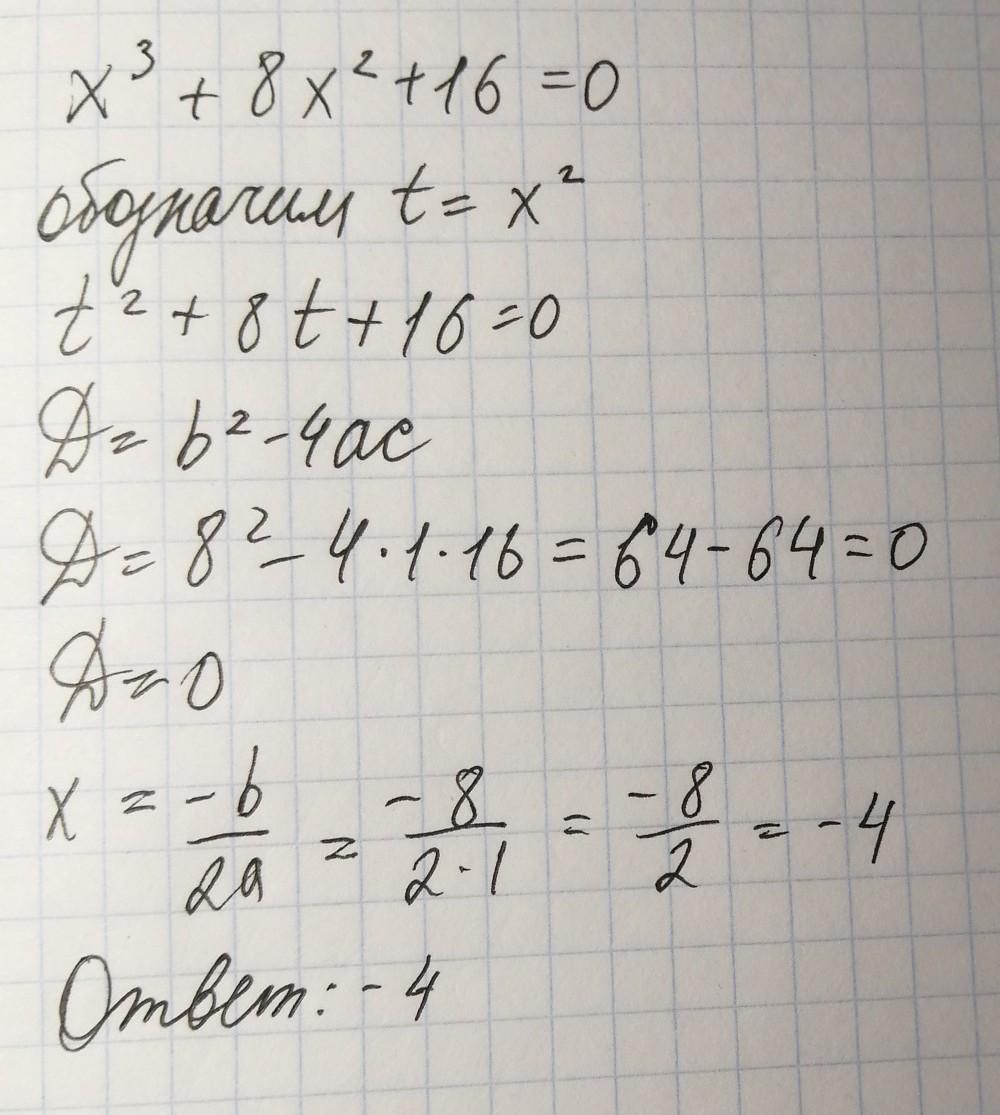 x³ + 8x² + 16 = 0
обозначим t = x²
t² + 8t + 16 = 0
D = b² - 4ac
D = 8² - 4·1·16 = 64 - 64 = 0
D = 0
x = -b/2a = -8/2·1 = -8/2 = -4
Ответ: -4